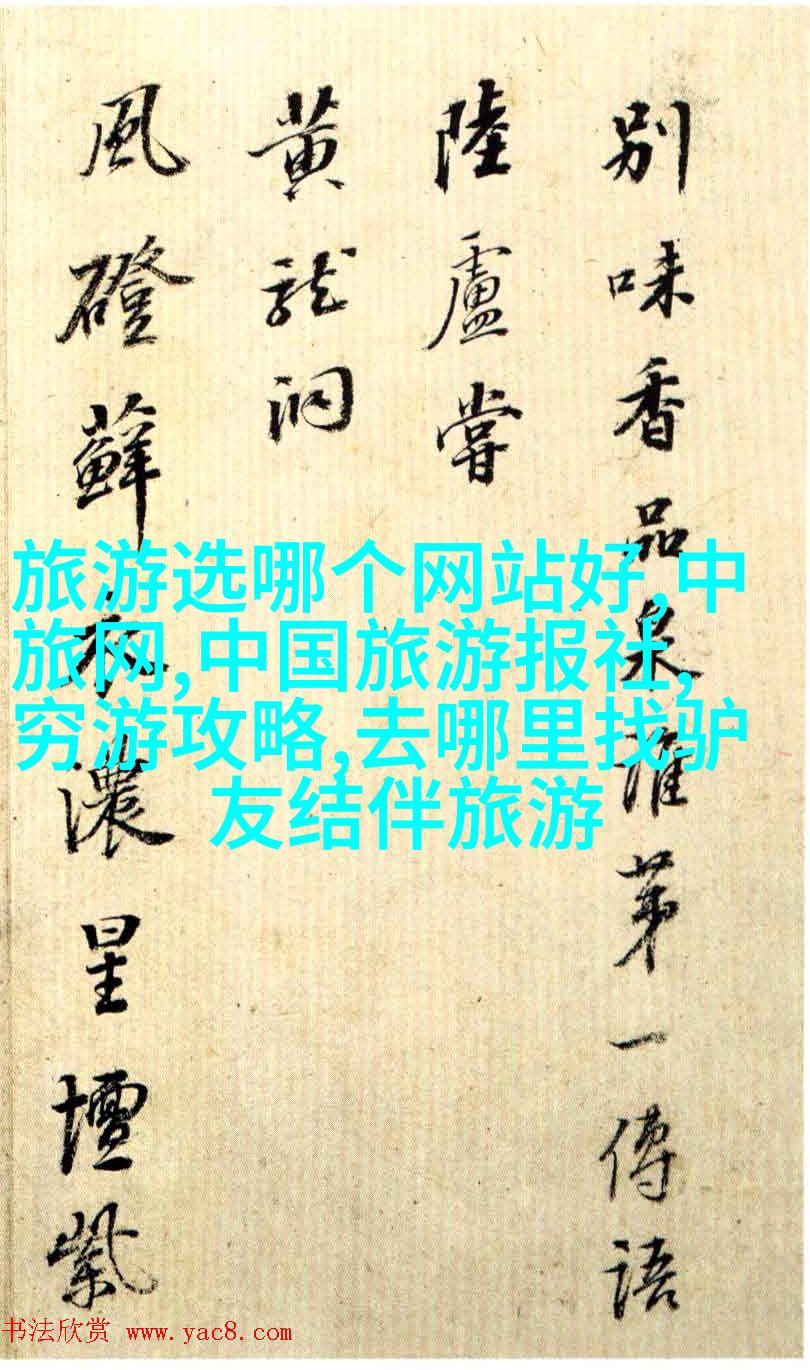 别味香品泉谁第一傳語
陸盧嘗
黄龍洞
風磴蘚衣濃星壇紫
旅游选哪个网站好,中
旅网,中国旅游报社,
穷游攻略,去哪里找驴
友结伴旅游
书法欣赏 www.yac8.com